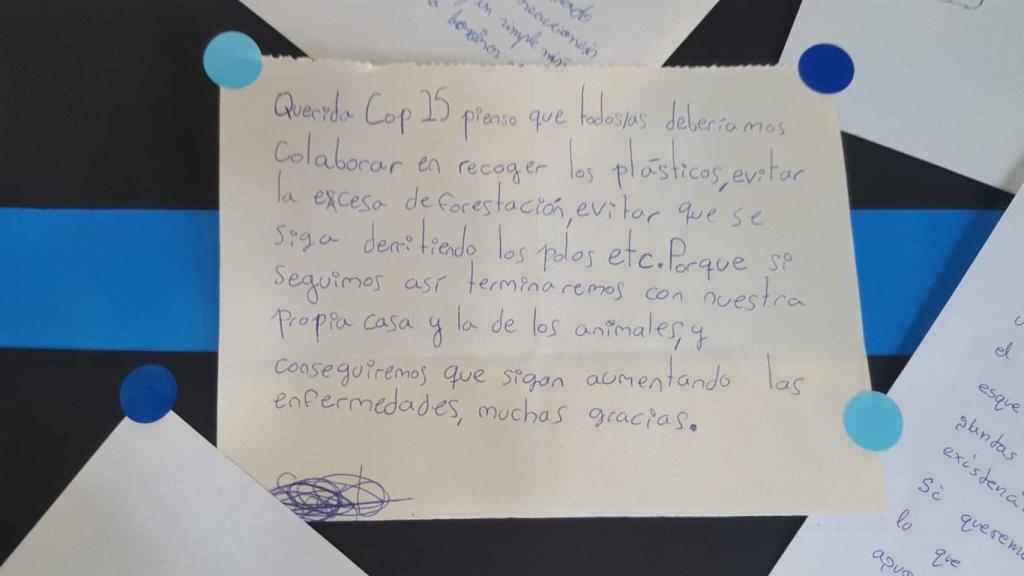 un simple
Querida Cop 25 pienso que todos/as deberíamos
colaborar en recoger los plásticos, evitar
la excesa deforestación, evitar que se
siga derritiendo los polos etc. Porque si
seguimos así terminaremos con nuestra
propia casa y la de los animales, y
conseguiremos que sigan aumentando las
enfermedades, muchas gracias.
el
esque
juntas
existencia
Si queremo
lo que